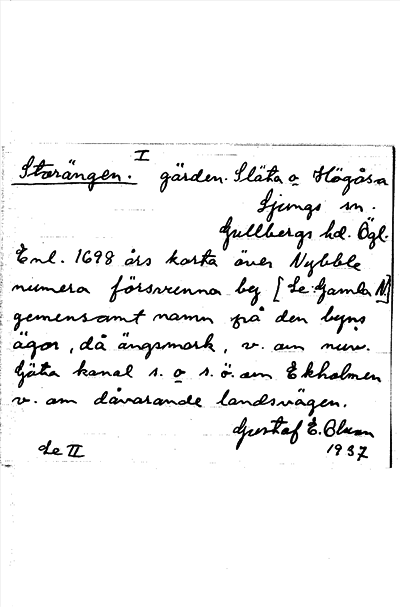 I
Storängen. gärden. Släta o Högåsa
Ljungs sn.
Gullbergs hd. Ögl.
Enl. 1698 års karta över Nybble
numera försvunna by [Se Gamla N]
gemensamt namn på den byns
ägor, då ängsmark, v. om nuv.
Göta kanal s. o s.ö. om Ekholmen
v. om dåvarande landsvägen.
Gustaf E. Blom
Se II 1937